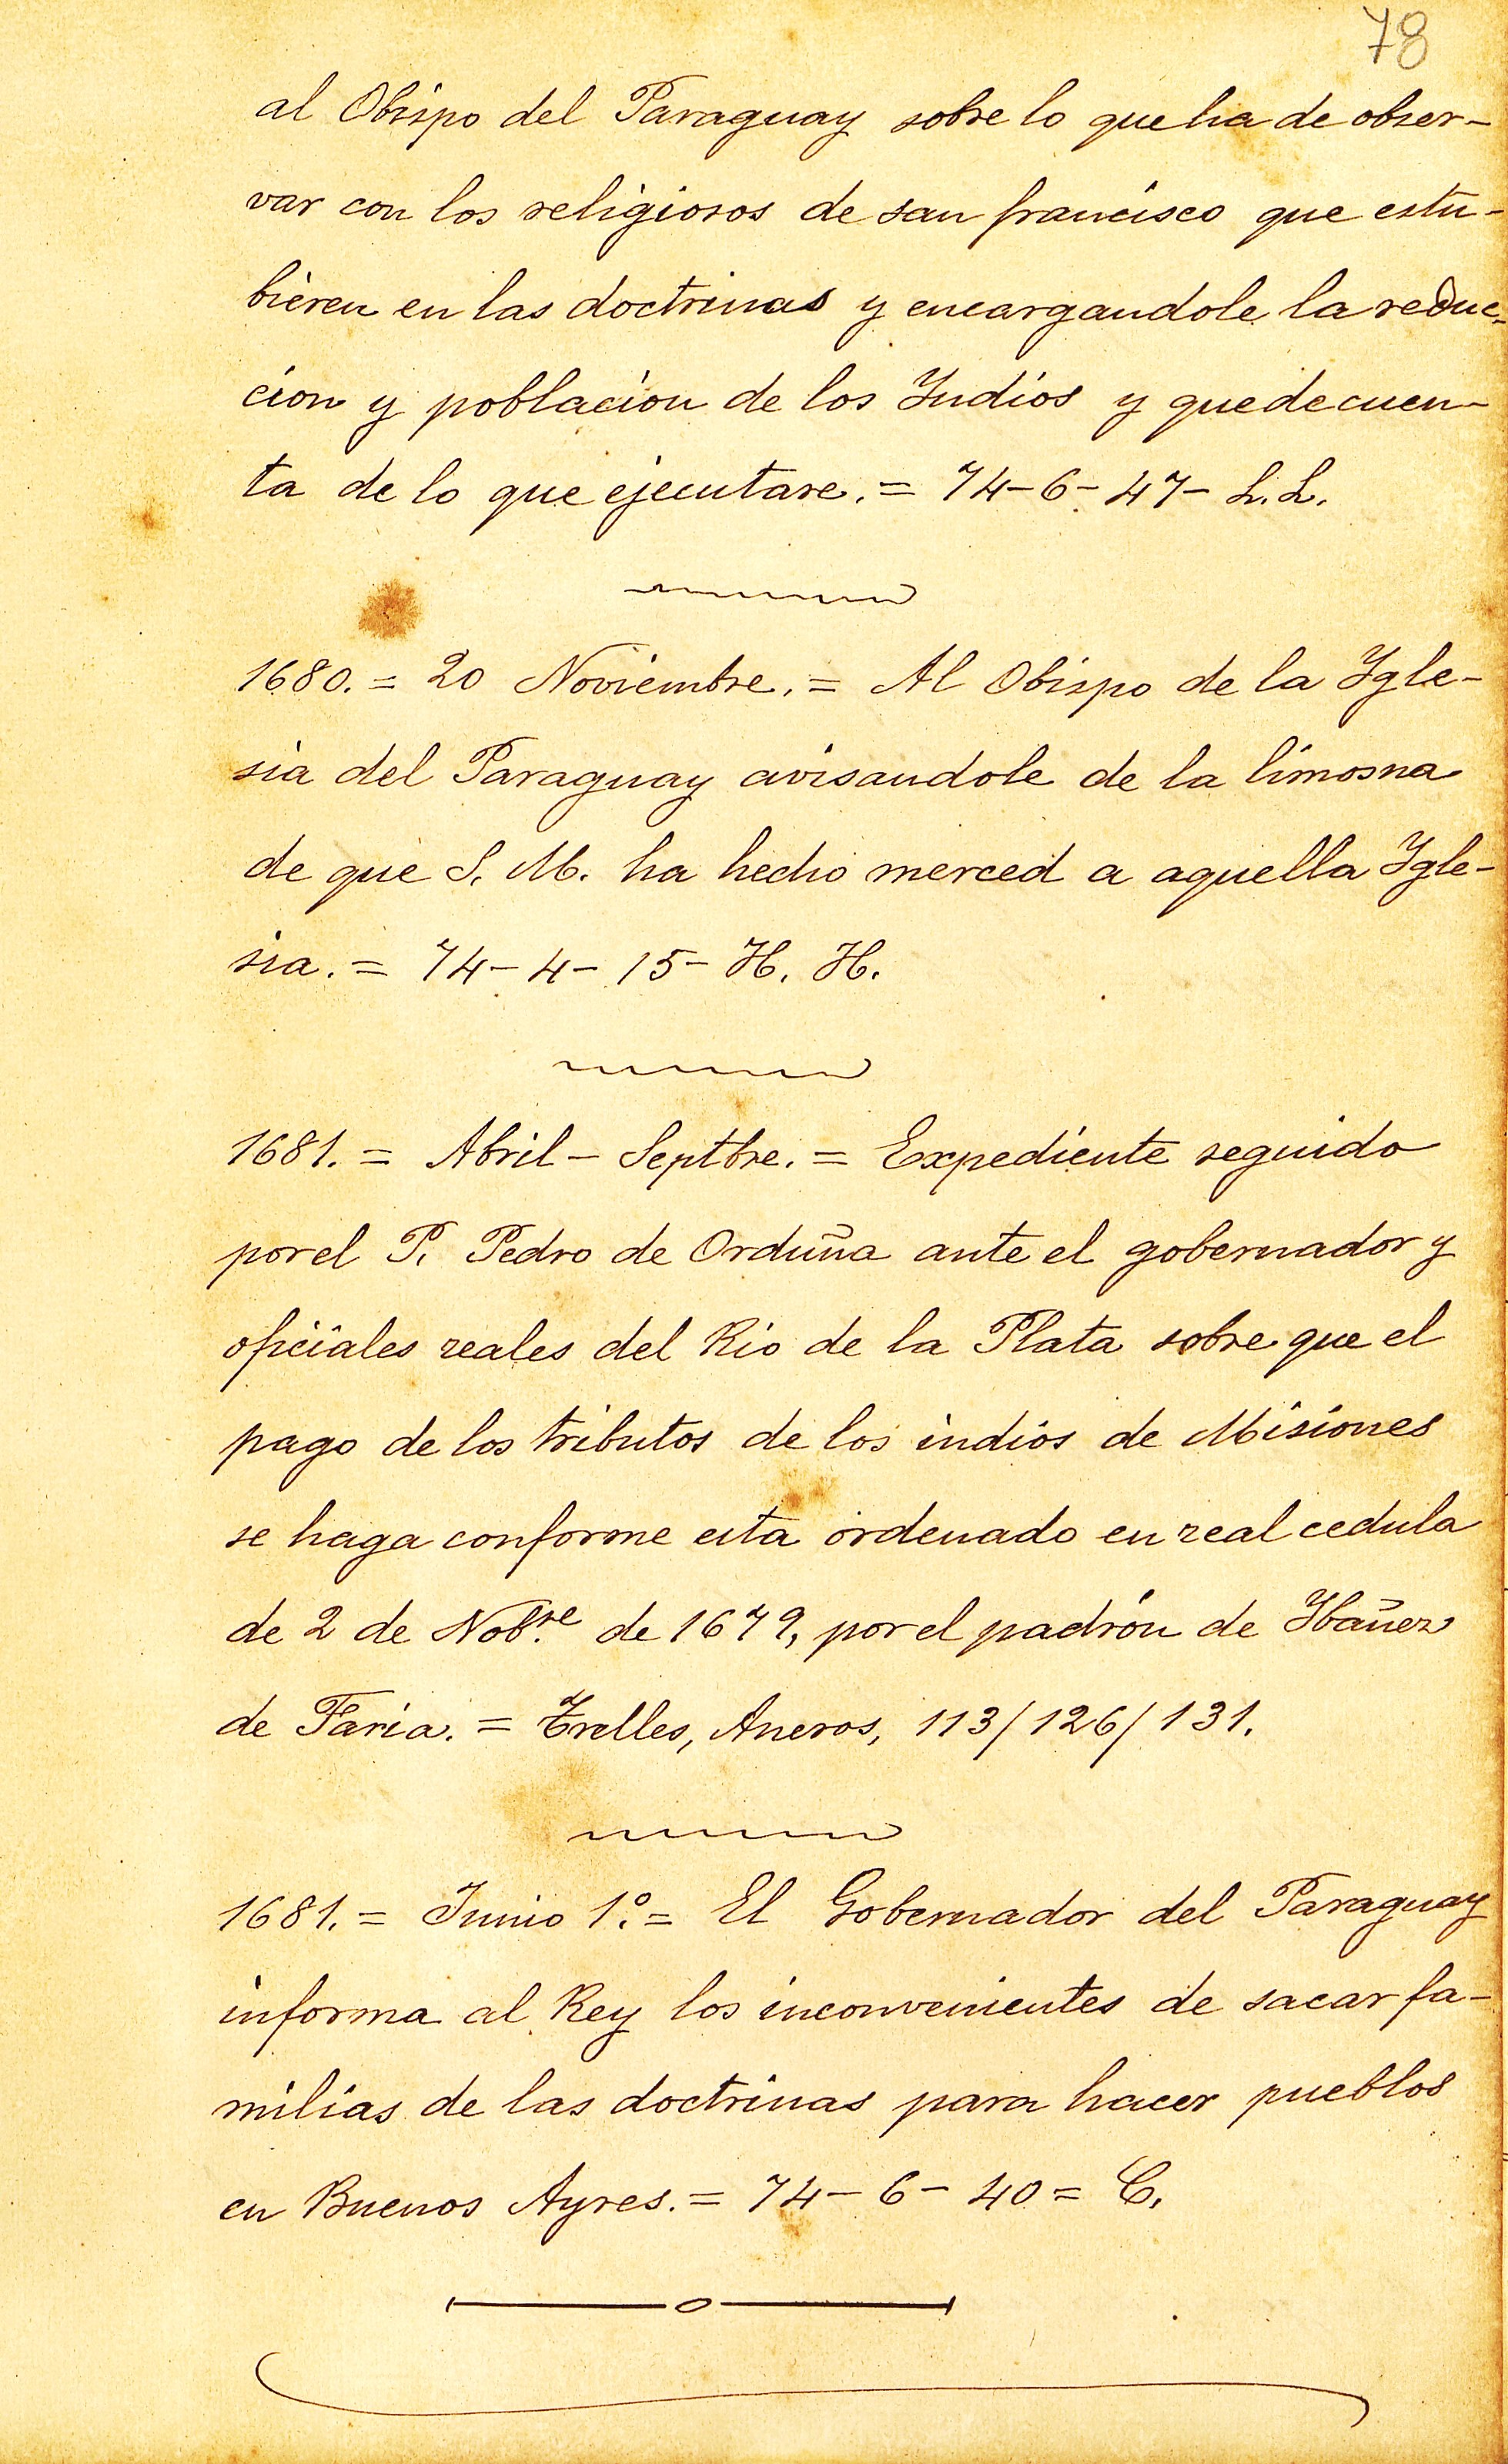 78
al Obispo del Paraguay sobre lo que ha de obser-
var con los religiosos de san francisco que estu-
bieren en las doctrinas y encargandole la reduc-
cion y poblacion de los Indios y que de cuen-
ta de lo que ejecutare. = 74-6-47- L.L.
1680. = 20 Noviembre. = Al Obispo de la Ygle-
sia del Paraguay avisandole de la limosna
de que S. M. ha hecho merced a aquella Ygle-
sia. = 74-4-15- H. H.
1681. = Abril - Septbre. = Expediente seguido
por el P. Pedro de Orduña ante el gobernador y
oficiales reales del Rio de la Plata sobre que el
pago de los tributos de los indios de Misiones
se haga conforme esta ordenado en real cedula
de 2 de Nobre de 1679, por el padrón de Ybañez
de Faria. = Trelles, Aneros, 113/126/131.
1681. = Junio 1.º = El Gobernador del Paraguay
informa al Rey los inconvenientes de sacar fa-
milias de las doctrinas para hacer pueblos
en Buenos Ayres. = 74-6-40 = C.